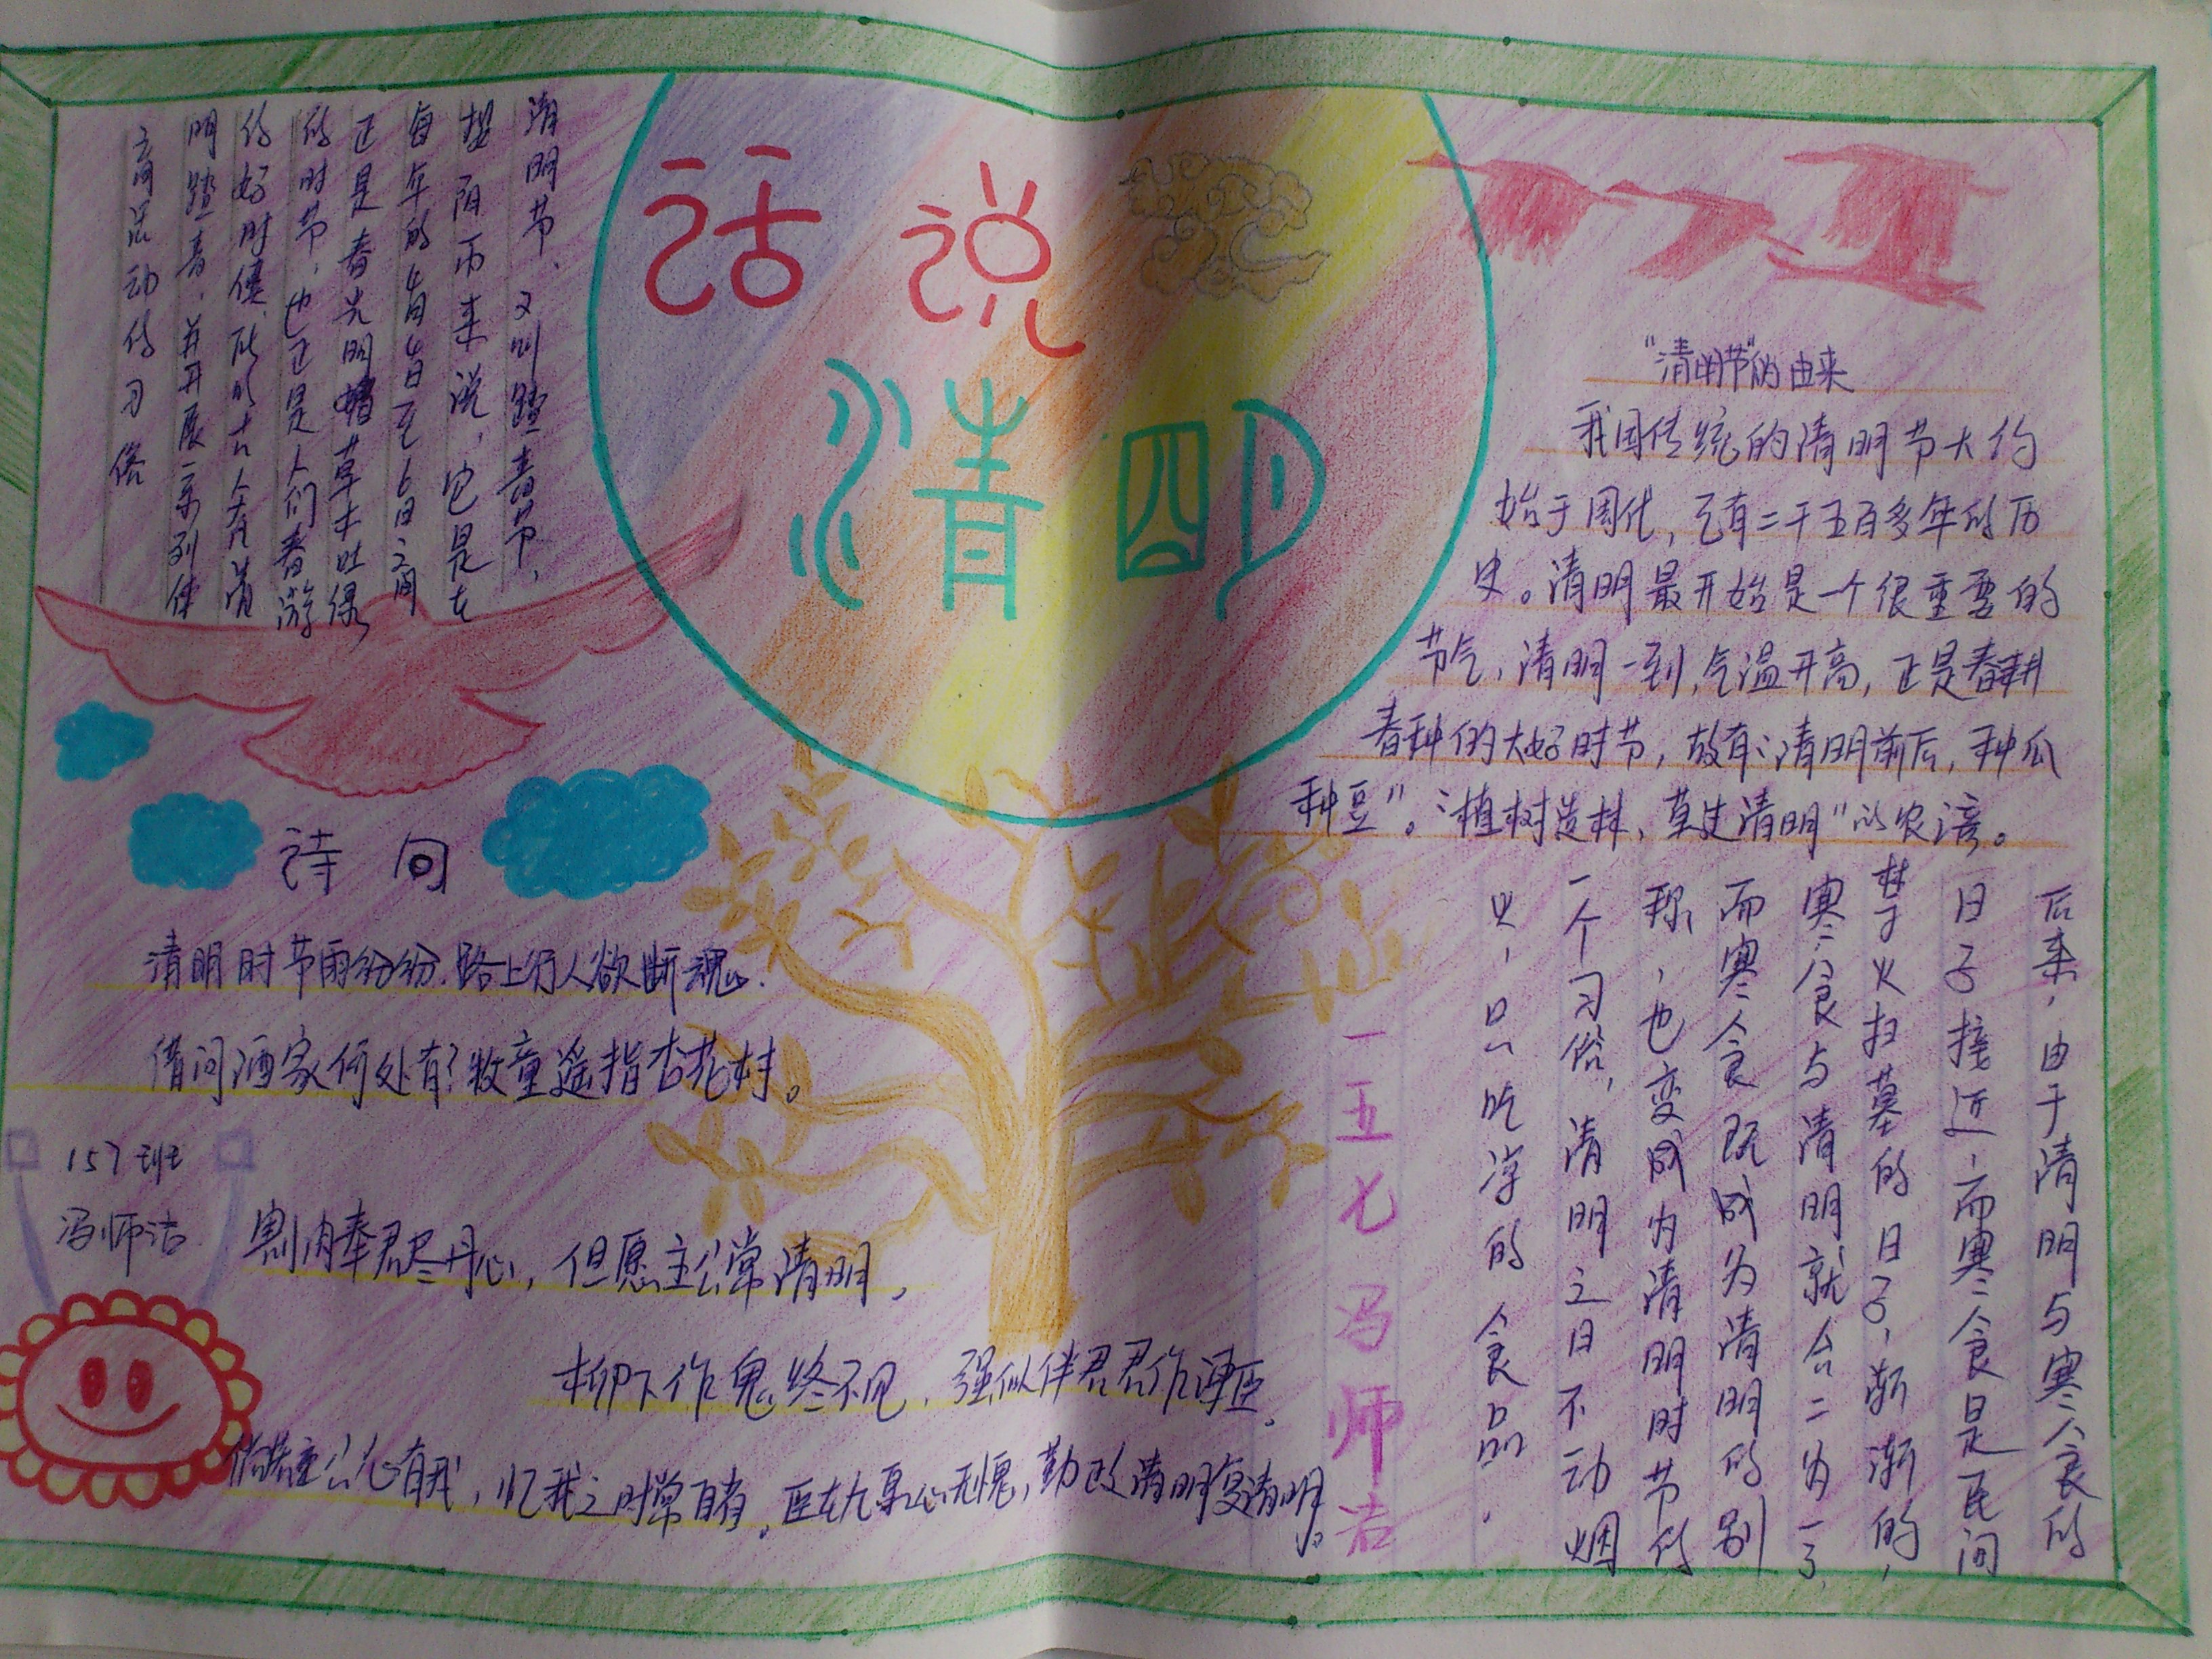 话说
清明
清明节，又叫踏青节，
按阳历来说，它是在
每年的4月4日至6日之间
正是春光明媚草木吐绿
的时节，也正是人们春游
的好时候，所以古人有清
明踏青，并开展一系列体
育活动的习俗
诗句
清明时节雨纷纷，路上行人欲断魂。
借问酒家何处有？牧童遥指杏花村。
157班
冯师洁
割肉奉君尽丹心，但愿主公常清明，
柳下作鬼终不见，强似伴君君作谏臣。
倘若主公心有我，忆我之时常自省。臣在九泉心无愧，勤政清明复清明。
"清明节"的由来
我国传统的清明节大约
始于周代，已有二千五百多年的历
史。清明最开始是一个很重要的
节气，清明一到，气温升高，正是春耕
春种的大好时节，故有"清明前后，种瓜
种豆"。"植树造林，莫过清明"的农谚。
后来，由于清明与寒食的
日子接近，而寒食是民间
禁火扫墓的日子，渐渐的，
寒食与清明就合二为一了，
而寒食既成为清明的别
称，也变成为清明时节的
一个习俗，清明之日不动烟
火，只吃凉的食品．
一五七 冯师洁